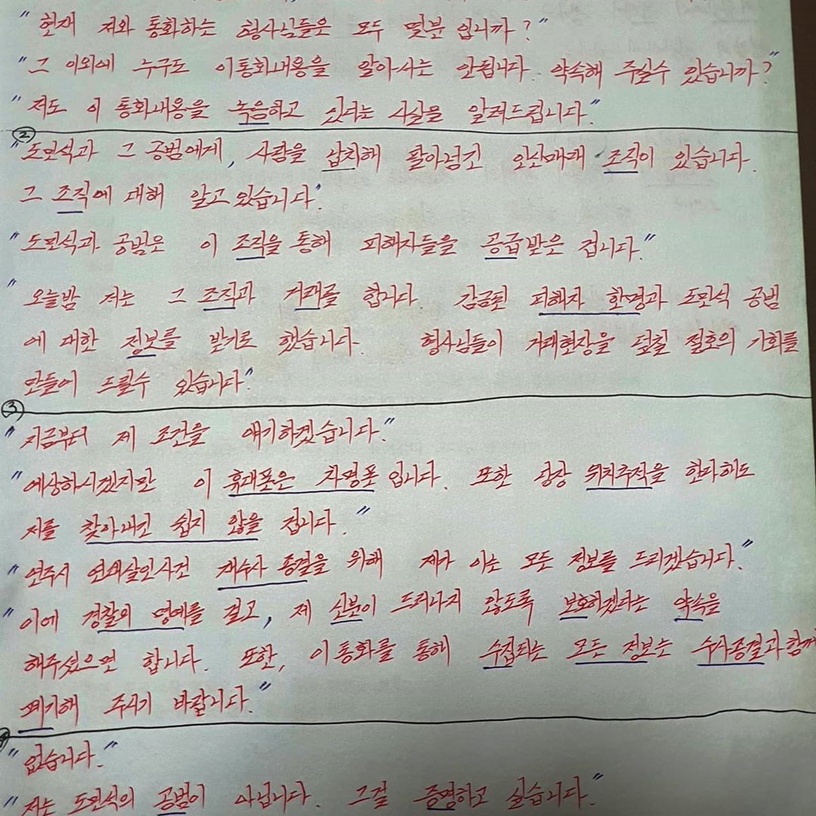 " 현재 저와 통화하는 형사님들은 모두 몇분 입니까? "
" 그 이외에 누구도 이통화내용을 알아서는 안됩니다. 약속해 주실수 있습니까? "
" 저도 이 통화내용을 녹음하고 있다는 사실을 알려드립니다. "
②
" 도민식과 그 공범에게, 사람을 납치해 팔아넘긴 인신매매 조직이 있습니다.
그 조직에 대해 알고 있습니다. "
" 도민식과 공범은 이 조직을 통해 피해자들을 공급받은 겁니다. "
" 오늘밤 저는 그 조직과 거래를 합니다. 감금된 피해자 한명과 도민식 공범
에 대한 정보를 받기로 했습니다. 형사님들이 거래현장을 덮칠 절호의 기회를
만들어 드릴수 있습니다. "
③
" 지금부터 제 조건을 얘기하겠습니다. "
" 예상하시겠지만 이 휴대폰은 차명폰 입니다. 또한 당장 위치추적을 한다해도
저를 찾아내긴 쉽지 않을 겁니다. "
" 연주시 연쇄살인사건 재수사 종결을 위해 제가 아는 모든 정보를 드리겠습니다. "
" 이에 경찰의 명예를 걸고, 제 신분이 드러나지 않도록 보호하겠다는 약속을
해주셨으면 합니다. 또한, 이 통화를 통해 수집되는 모든 정보는 수사종결과 함께
폐기해 주시기 바랍니다. "
" 없습니다. "
" 저는 도민식의 공범이 아닙니다. 그걸 증명하고 싶습니다. "